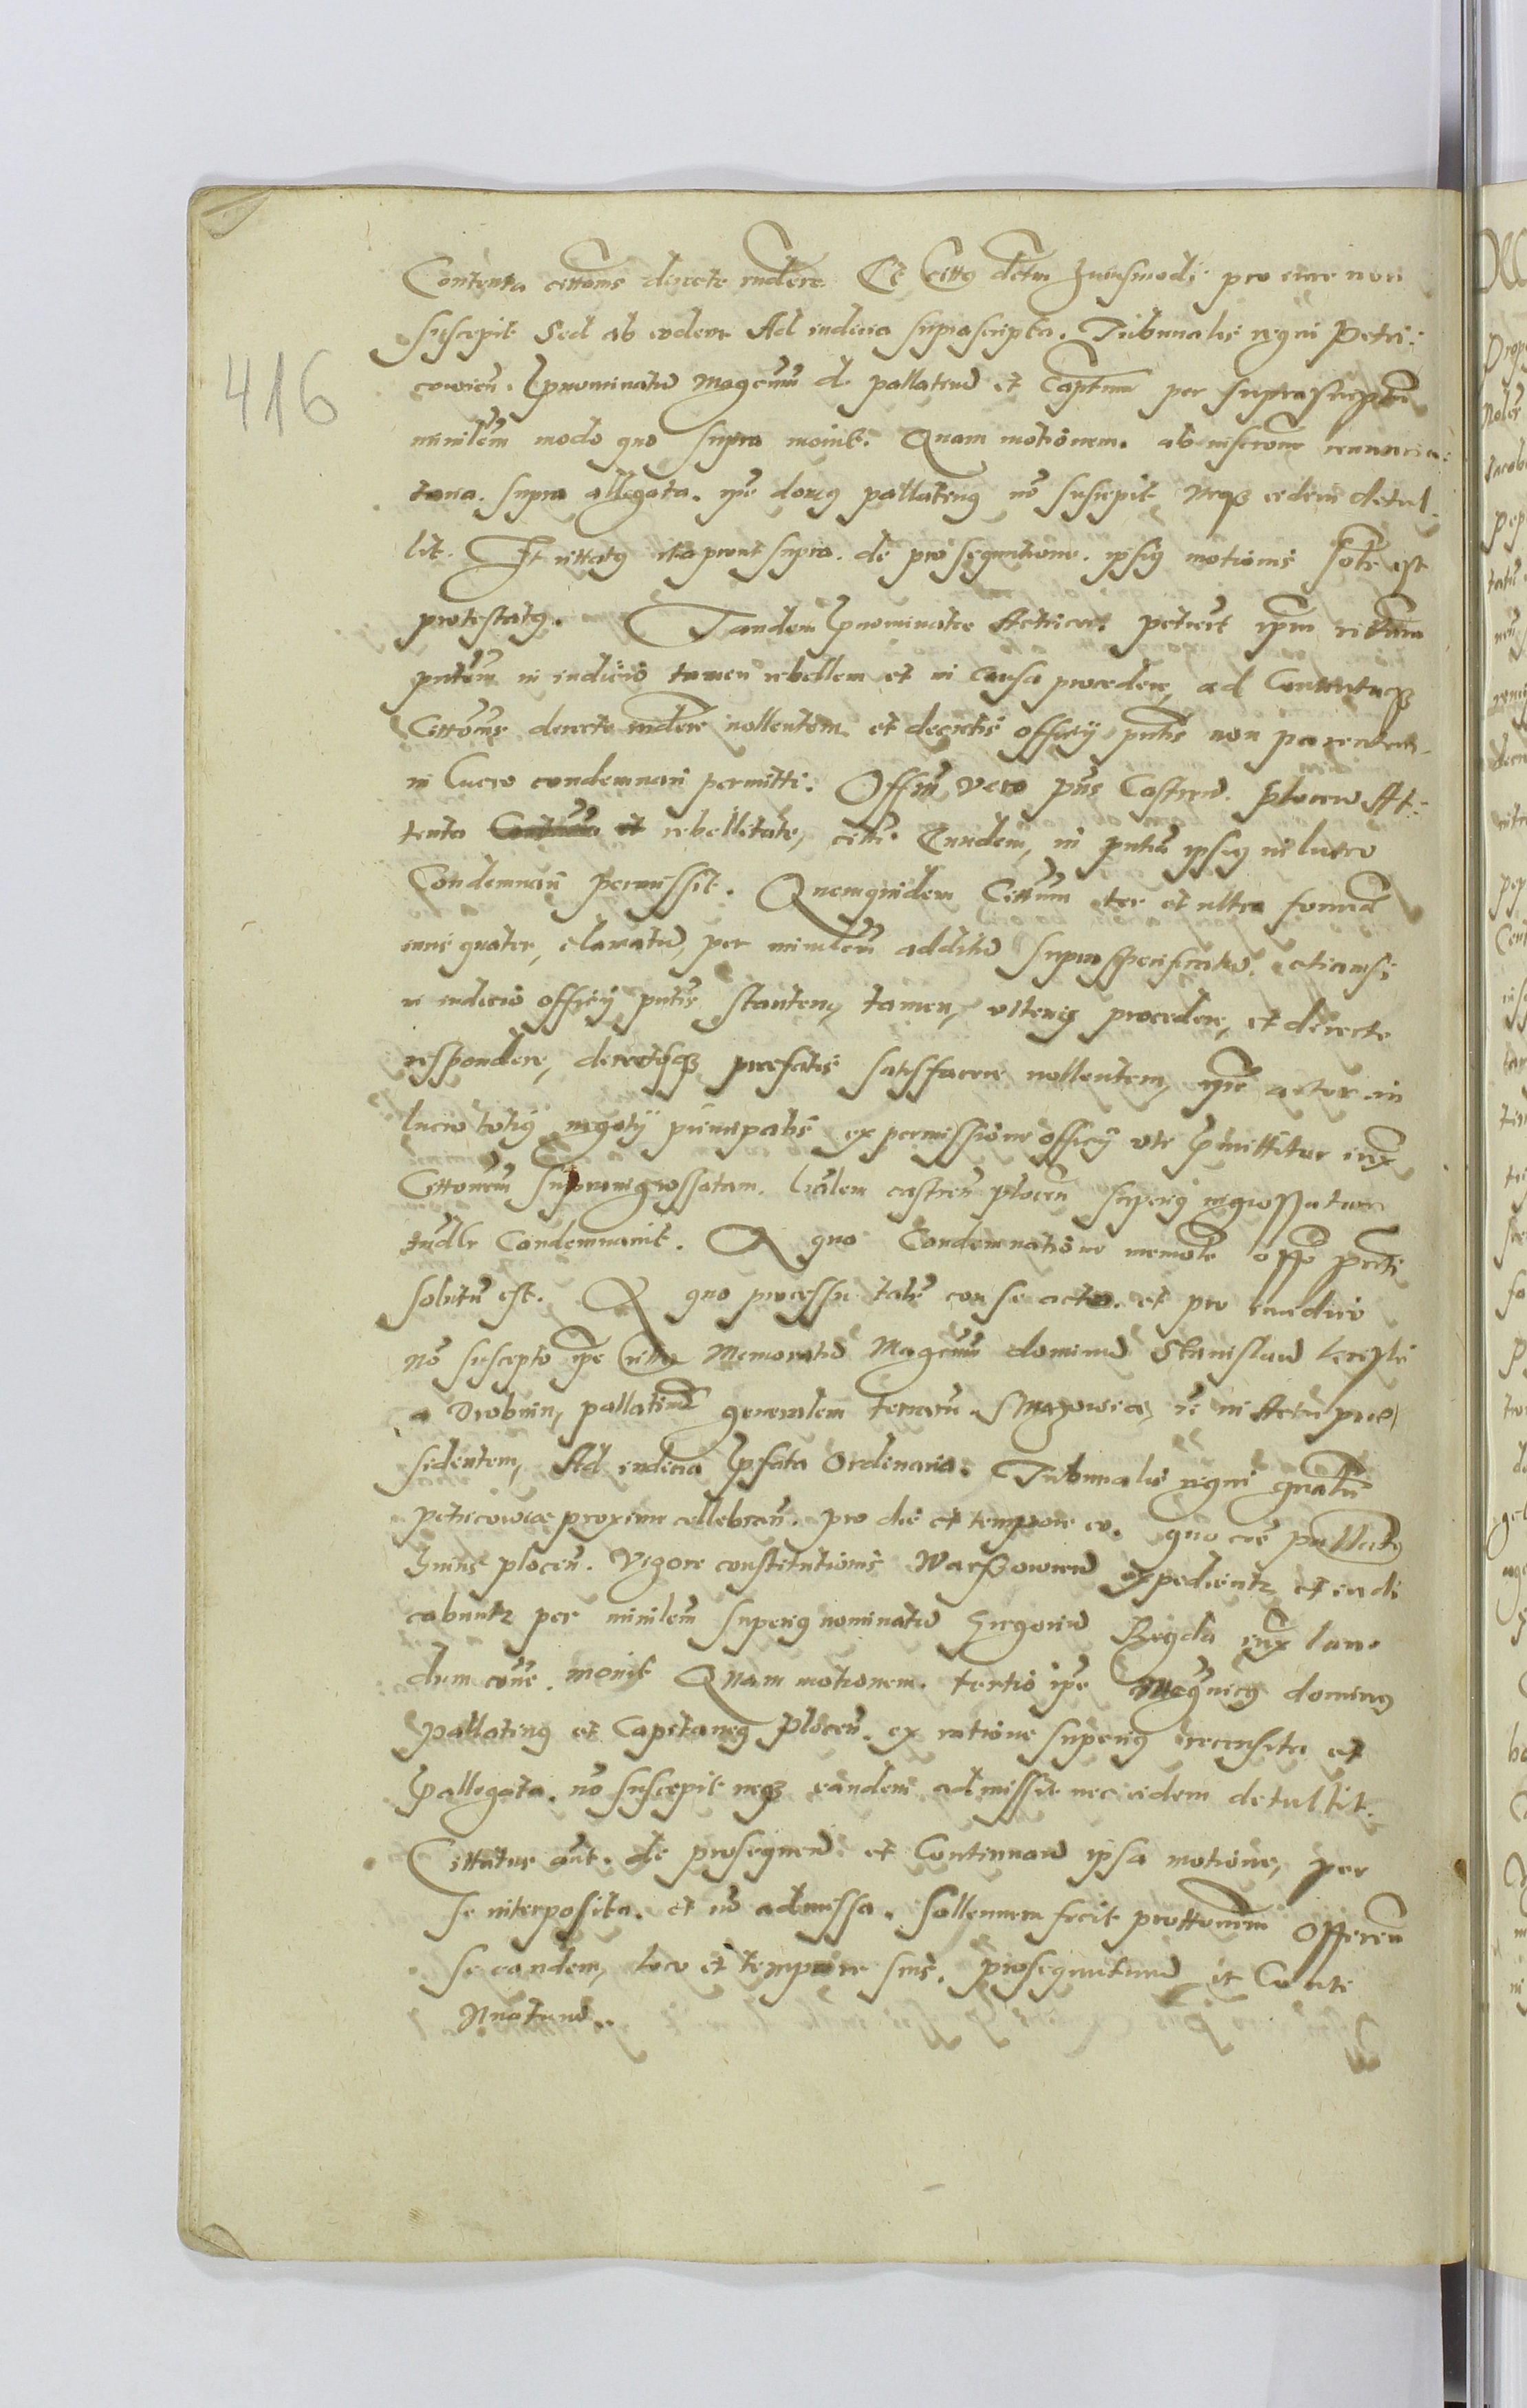 Contenta cittõnis directe rndere. Et Cittus dctm huiusmodi pro iure non
suscepit Sed ab eodem Ad iudicia suprascripta. Tribunalis regni Petri:
coviens. pnominatũ Magcum d. pallatinũ et Captum per suprascriptũ
minilem modo quo supra movit. Quam motionem. ab
taria. supra allegata. ipe dominus pallatinus nõ suscepit neqз eidem detul-
lit. Et cittatus ita prout supra. de prosequutione. ipsius motionis solr est
protestatus. Tandem pnominatus Actor. petivit ipm cittatum
pntem in iudicio tamen rebellem et in causa procedere, ad Contentaqз
Cittõnis directe rndere nollentem et decretis officij pntis non parentem
in lucro condemnari permitti. Offm vero pns Castrenũ. plocen At:
tenta et rebellitate, citti. Eundem, in pntia ipsius in lucro
Condemnari permissit. Quemquidem Cittum ter et ultra
quater, clamatũ, per minilem additũ supraspecificatũ, etiamsi
in iudicio officij pntis stantem, tamen, ulterius procedere, et directe
respondere, decretisqз prefatis satisfacere nollentem, ipse actor in
lucro totius negotij principalis ex permissione officij uti pmittitur iuxta
Cittõnem supraingrossatam. lralem castren plocen superius ingrossatam
tndlr Condemnavit. A qua Condemnatione memoriale offo pnti
solutũ est. A quo processu tali con se acto. et pro iuridico
nõ suscepto ipe cittus Memoratũ Magcum dominũ Stanislaũ Krziski
a Drobnin, pallatinũ generalem terrarũ Mazowiae, ut in Actu pres
sidentem, Ad iudicia pfata Ordinaria. Tribunalis regni
petricoviae proxime cellebran. pro die et tempore eo. quo cae pallatus
huius plocen. Vigore constitutionis Warssovien expedientur et iudi
cabuntur per minilem superius nominatũ Gregoriũ Bogda iuxta lau.
dum cõne. movit Quam motionem. tertio ipe Magnificus dominus
Pallatinus et Capitaneus Plocen. ex ratione superius recensita et
pallegata. nõ suscepit neqз eandem admissit nec eidem detullit.
Cittatus aut. de prosequen. et Continuan ipsa motione, per
se interposita. et nõ admissa. sollennem fecit prottõnem Offeren
se eandem, loco et tempore suis. prosequuturũ et Conti
nuaturũ.
416